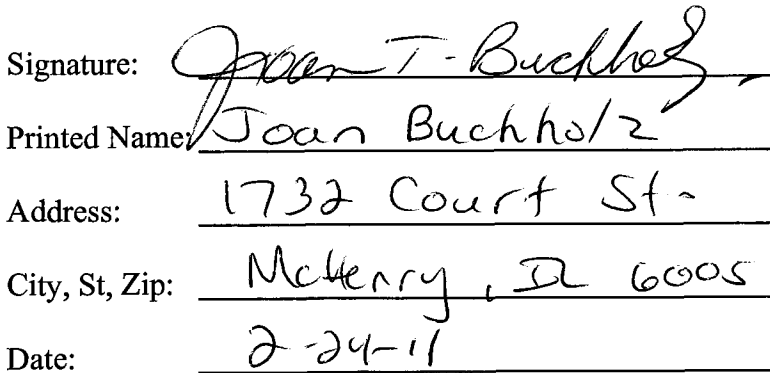 Signature: Joan T. Buchholz
Printed Name: Joan Buchholz
Address: 1732 Court St.
City, St, Zip: McHenry, IL 6005
Date: 2-24-11